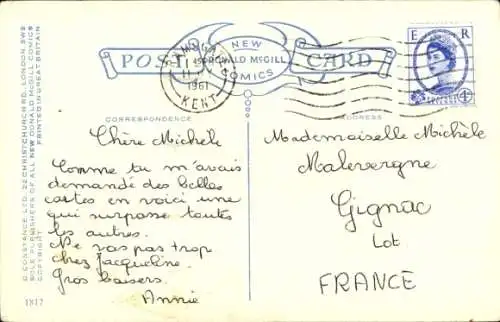 POST CARD
NEW
DONALD McGILL
COMICS
RAMSGATE
1961
KENT
E R
CORRESPONDENCE
ADDRESS
Chère Michèle
Comme tu m'avais
demandé des belles
cartes en voici une
qui surpasse toutes
les autres.
Ne vas pas trop
chez Jacqueline.
Gros baisers.
Annie
Mademoiselle Michèle
Malevergne
Gignac
Lot
FRANCE
D. CONSTANCE LTD. 22 CHRISTCHURCH RD. LONDON. SW2
SOLE PUBLISHERS OF ALL NEW DONALD McGILL COMICS
COPYRIGHT PRINTED IN GREAT BRITAIN
1817